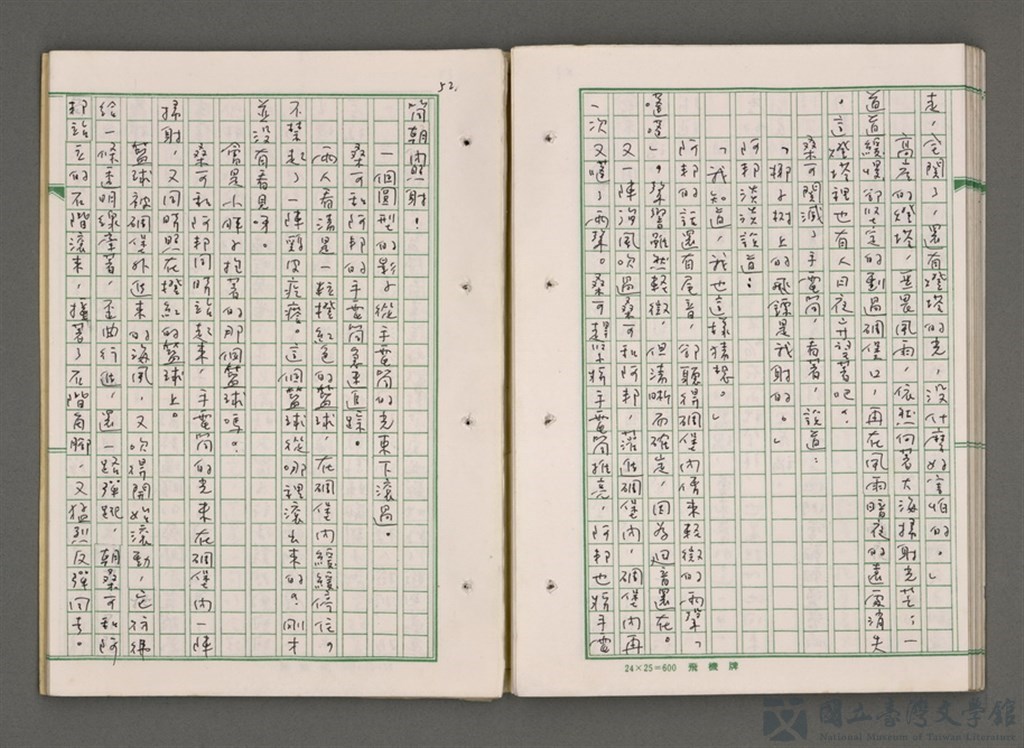 走，它開了，還有燈塔的光，沒什麼好害怕的。」
高崖的燈塔，無畏風雨，依然向著大海掃射光芒；一
道道緩慢卻堅定的劃過碉堡口，再在風雨暗夜的遠處消失
。這燈塔裡也有人日夜守望著吧。
桑可關滅了手電筒，看著，說道：
「椰子樹上的飛鏢是我射的。」
阿邦淡淡說道：
「我知道，我也這樣猜想。」
阿邦的話還有尾音，卻聽得碉堡內傳來輕微的兩聲「
噠噠」。聲響雖然輕微，但清晰而確定，因為回音還在。
又一陣海風吹過桑可和阿邦，灌進碉堡內，碉堡內再
一次噠了兩聲。桑可趕緊將手電筒推亮，阿邦也將手電
24×25=600 飛機牌
52.
筒朝內照射！
一個圓型的影子從手電筒的光束下滾過。
桑可和阿邦的手電筒急速追蹤。
兩人看清是一粒橙紅色的籃球，在碉堡內緩緩停住，
不禁起了一陣雞皮疙瘩。這個籃球從哪裡滾出來的？剛才
並沒有看見呀。
會是小胖子抱著的那個籃球嗎？
桑可和阿邦同時站起來，手電筒的光束在碉堡內一陣
掃射，又同時照在橙紅的籃球上。
籃球被碉堡外進來的海風，又吹得開始滾動，它彷彿
給一條透明線牽著，歪曲行進，還一路彈跳，朝桑可和阿
邦站立的石階滾來，撞著了石階角腳，又猛烈反彈回去。
國立臺灣文學館
National Museum of Taiwan Literature